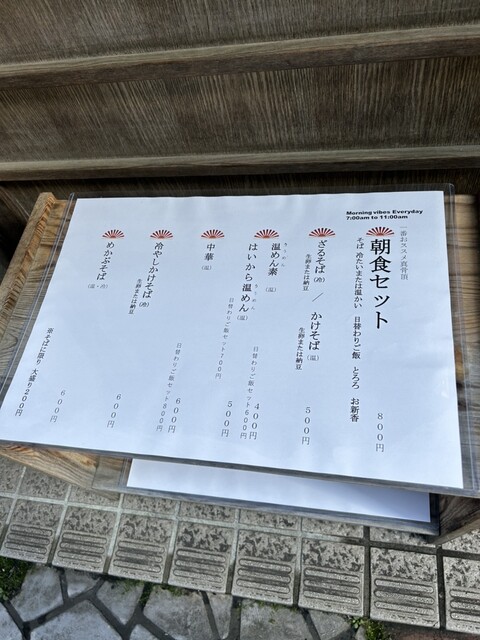 Morning vibes Everyday
7:00am to 11:00am
一番おススメ真骨頂
朝食セット
そば 冷たいまたは温かい 日替わりご飯 とろろ お新香
８００円
ざるそば（冷）／ かけそば（温）
生卵または納豆 生卵または納豆
５００円
温めん素（温）
４００円
日替わりご飯セット６００円
はいから温めん（温）
５００円
日替わりご飯セット７００円
中華（温）
６００円
日替わりご飯セット８００円
冷やしかけそば（冷）
生卵または納豆
６００円
めかぶそば（温・冷）
６００円
蕎そばに限り 大盛り２００円